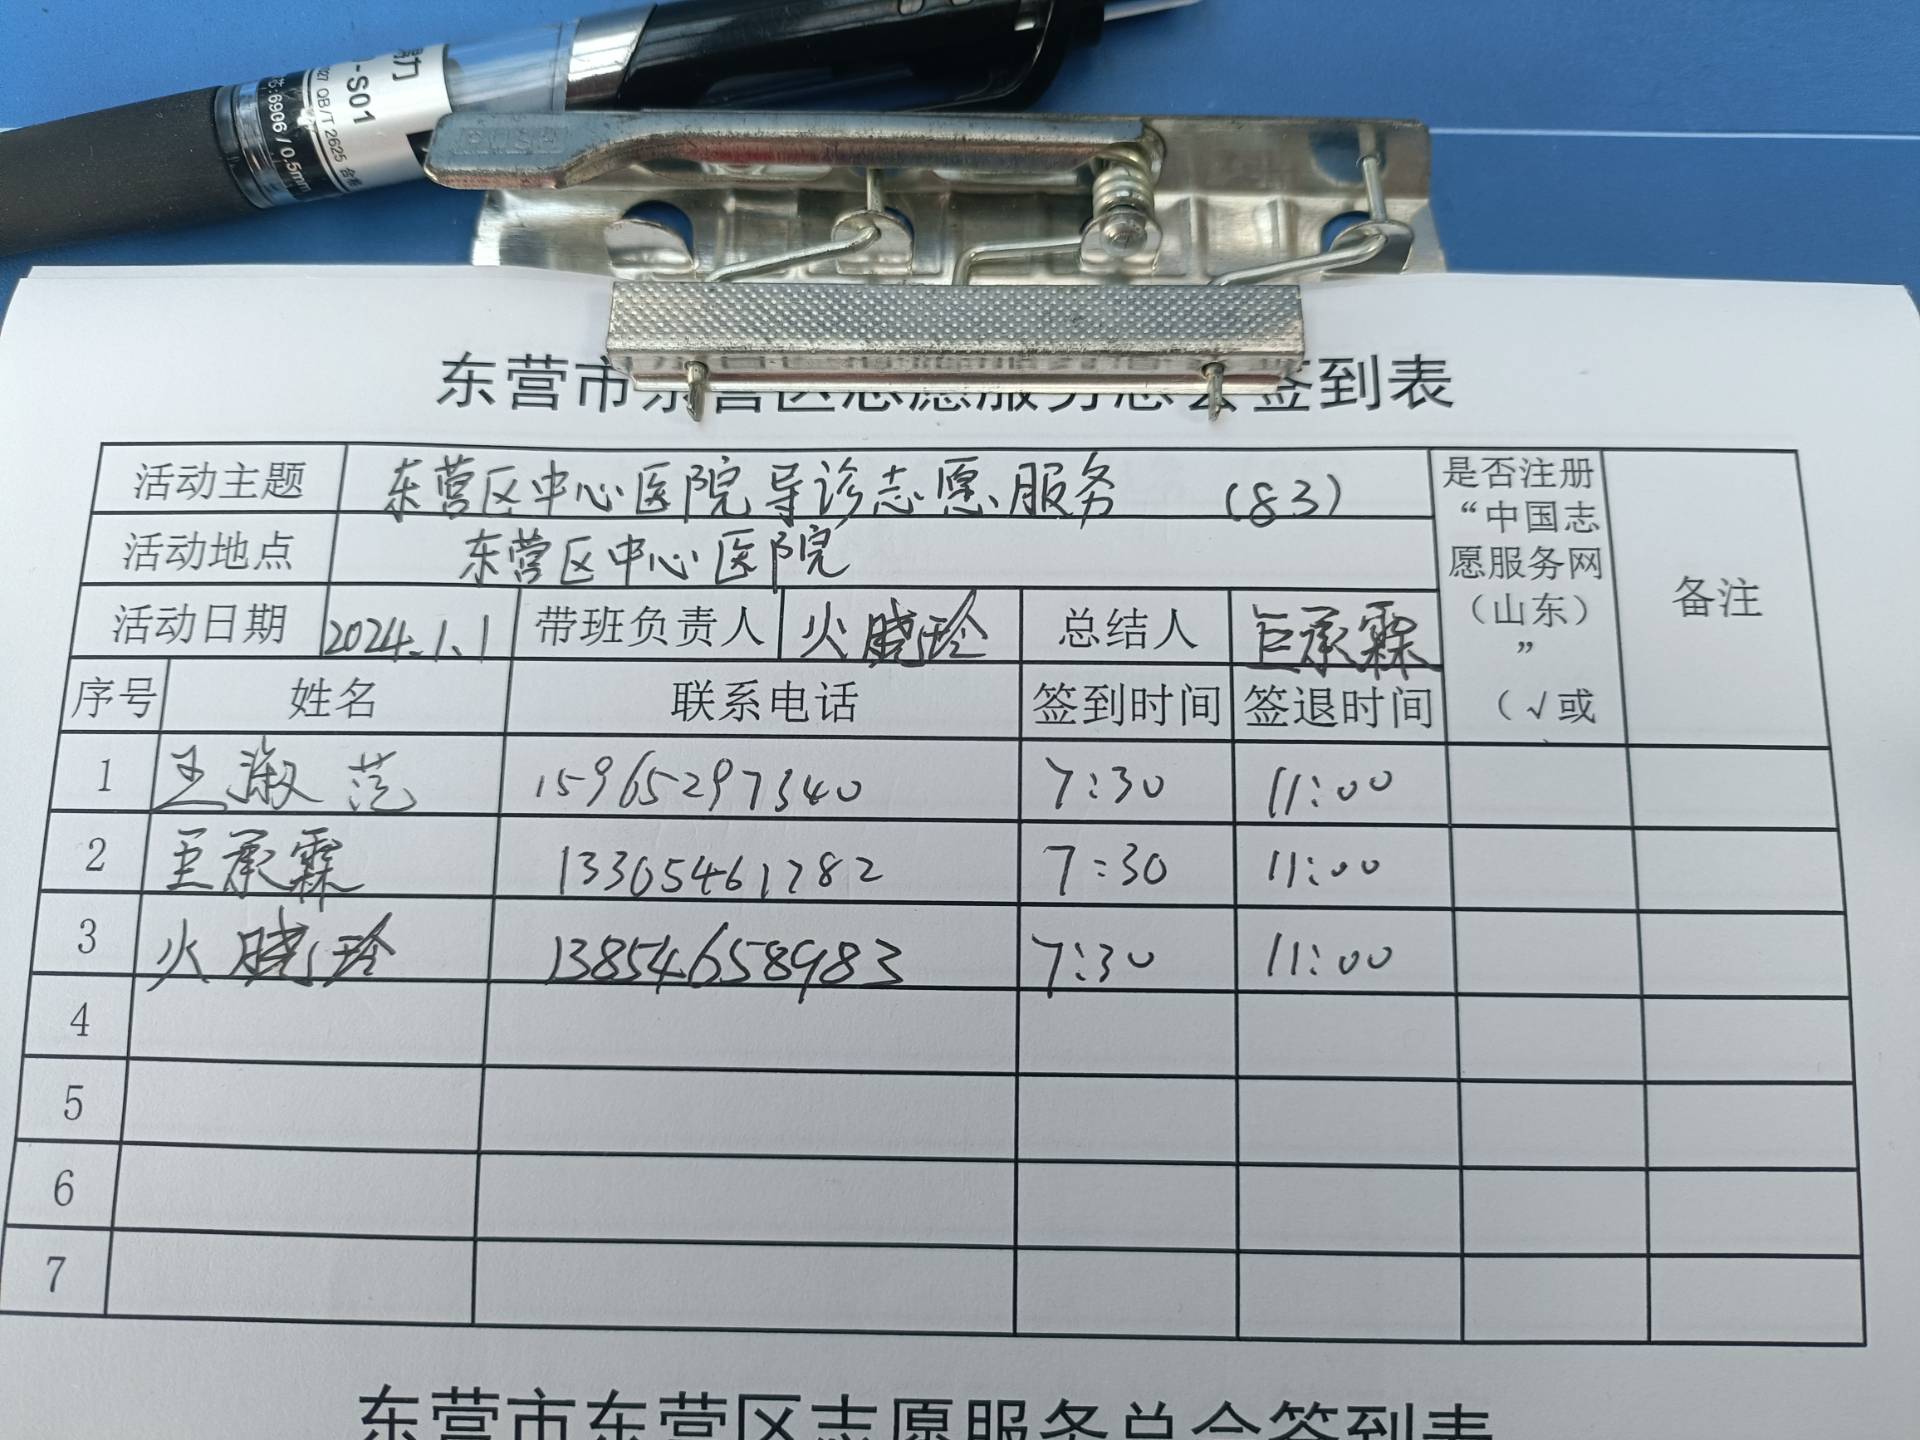 -S01
6906 / 0.5mm
QB/T 2625 合格
东营市东营区志愿服务总会签到表
活动主题 东营区中心医院导诊志愿服务 (83)
是否注册“中国志愿服务网（山东）”（√或
备注
活动地点 东营区中心医院
活动日期 2024.1.1 带班负责人 火晓玲 总结人 巨承霖
序号 姓名 联系电话 签到时间 签退时间
1 王淑范 15965297340 7:30 11:00
2 巨承霖 13305461782 7:30 11:00
3 火晓玲 13854658983 7:30 11:00
4
5
6
7
东营市东营区志愿服务总会签到表